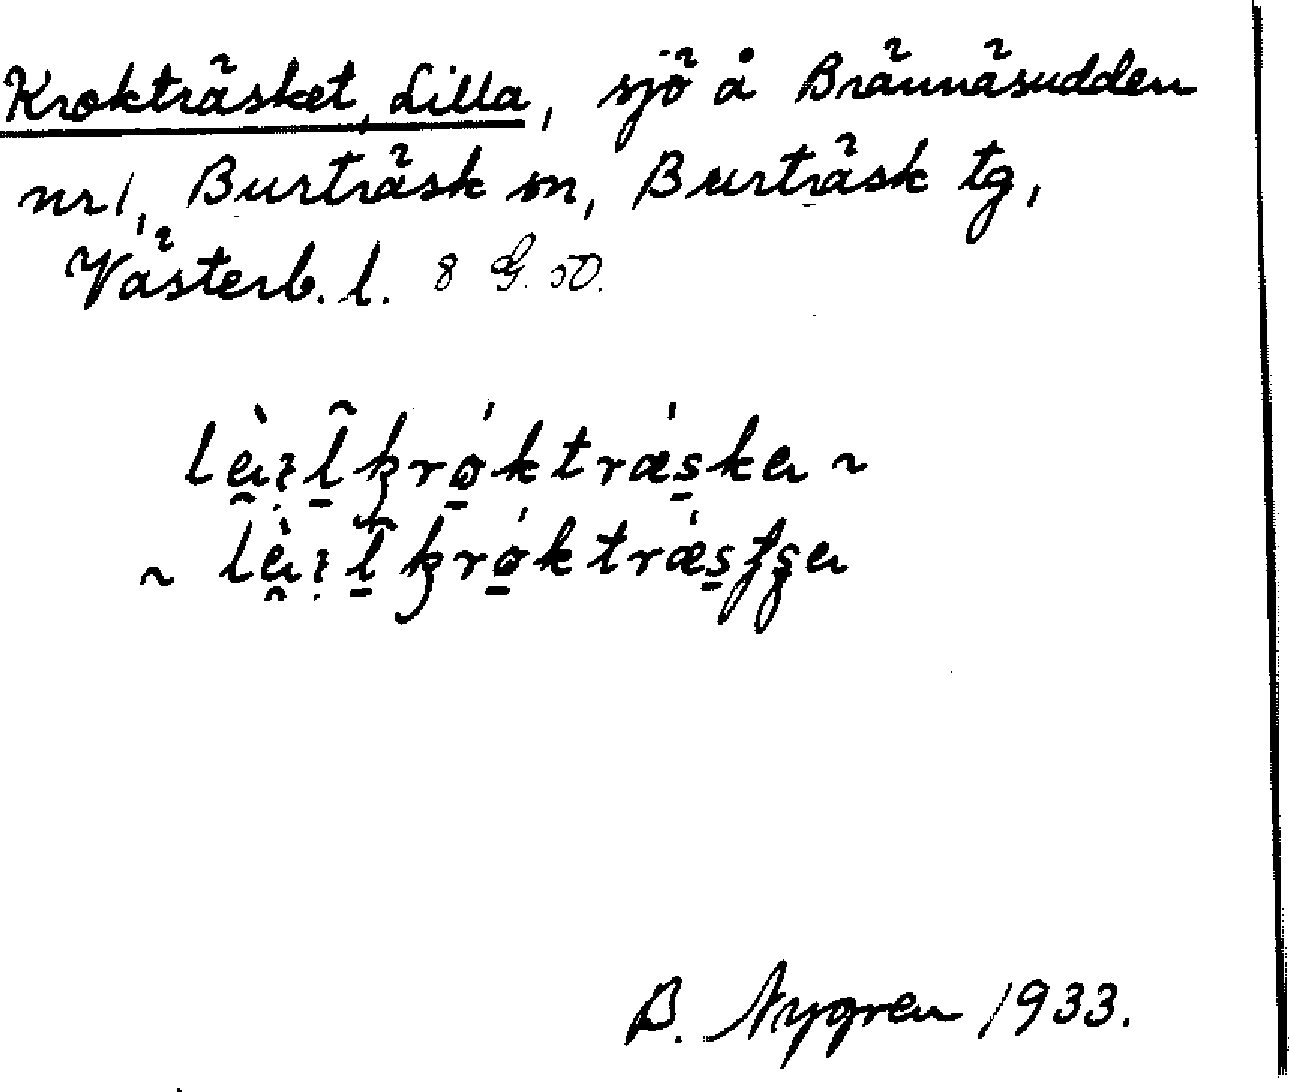 Krokträsket, Lilla, sjö å Brännäsudden
nr 1, Burträsk sn, Burträsk tg,
Västerb. l. 8 G. 50.
B. Nygren 1933.